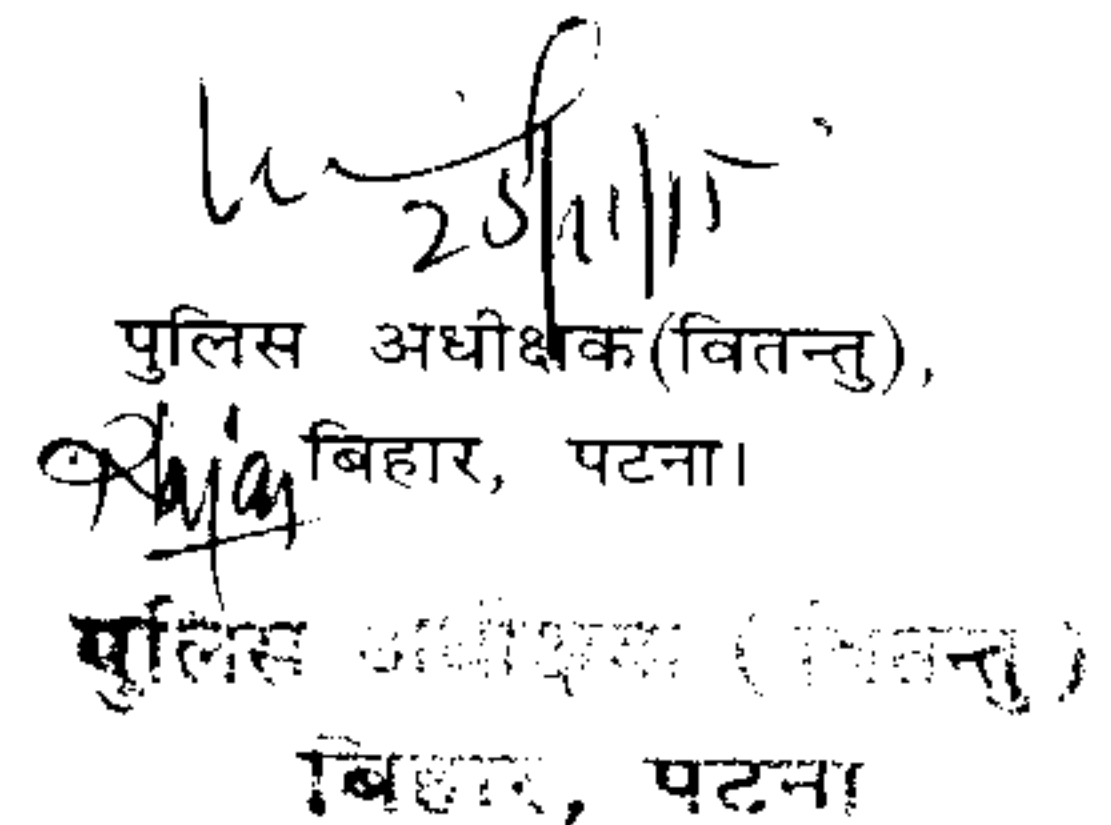 25/11/15
पुलिस अधीक्षक(वितन्तु),
बिहार, पटना।
पुलिस अधीक्षक (वितन्तु)
बिहार, पटना